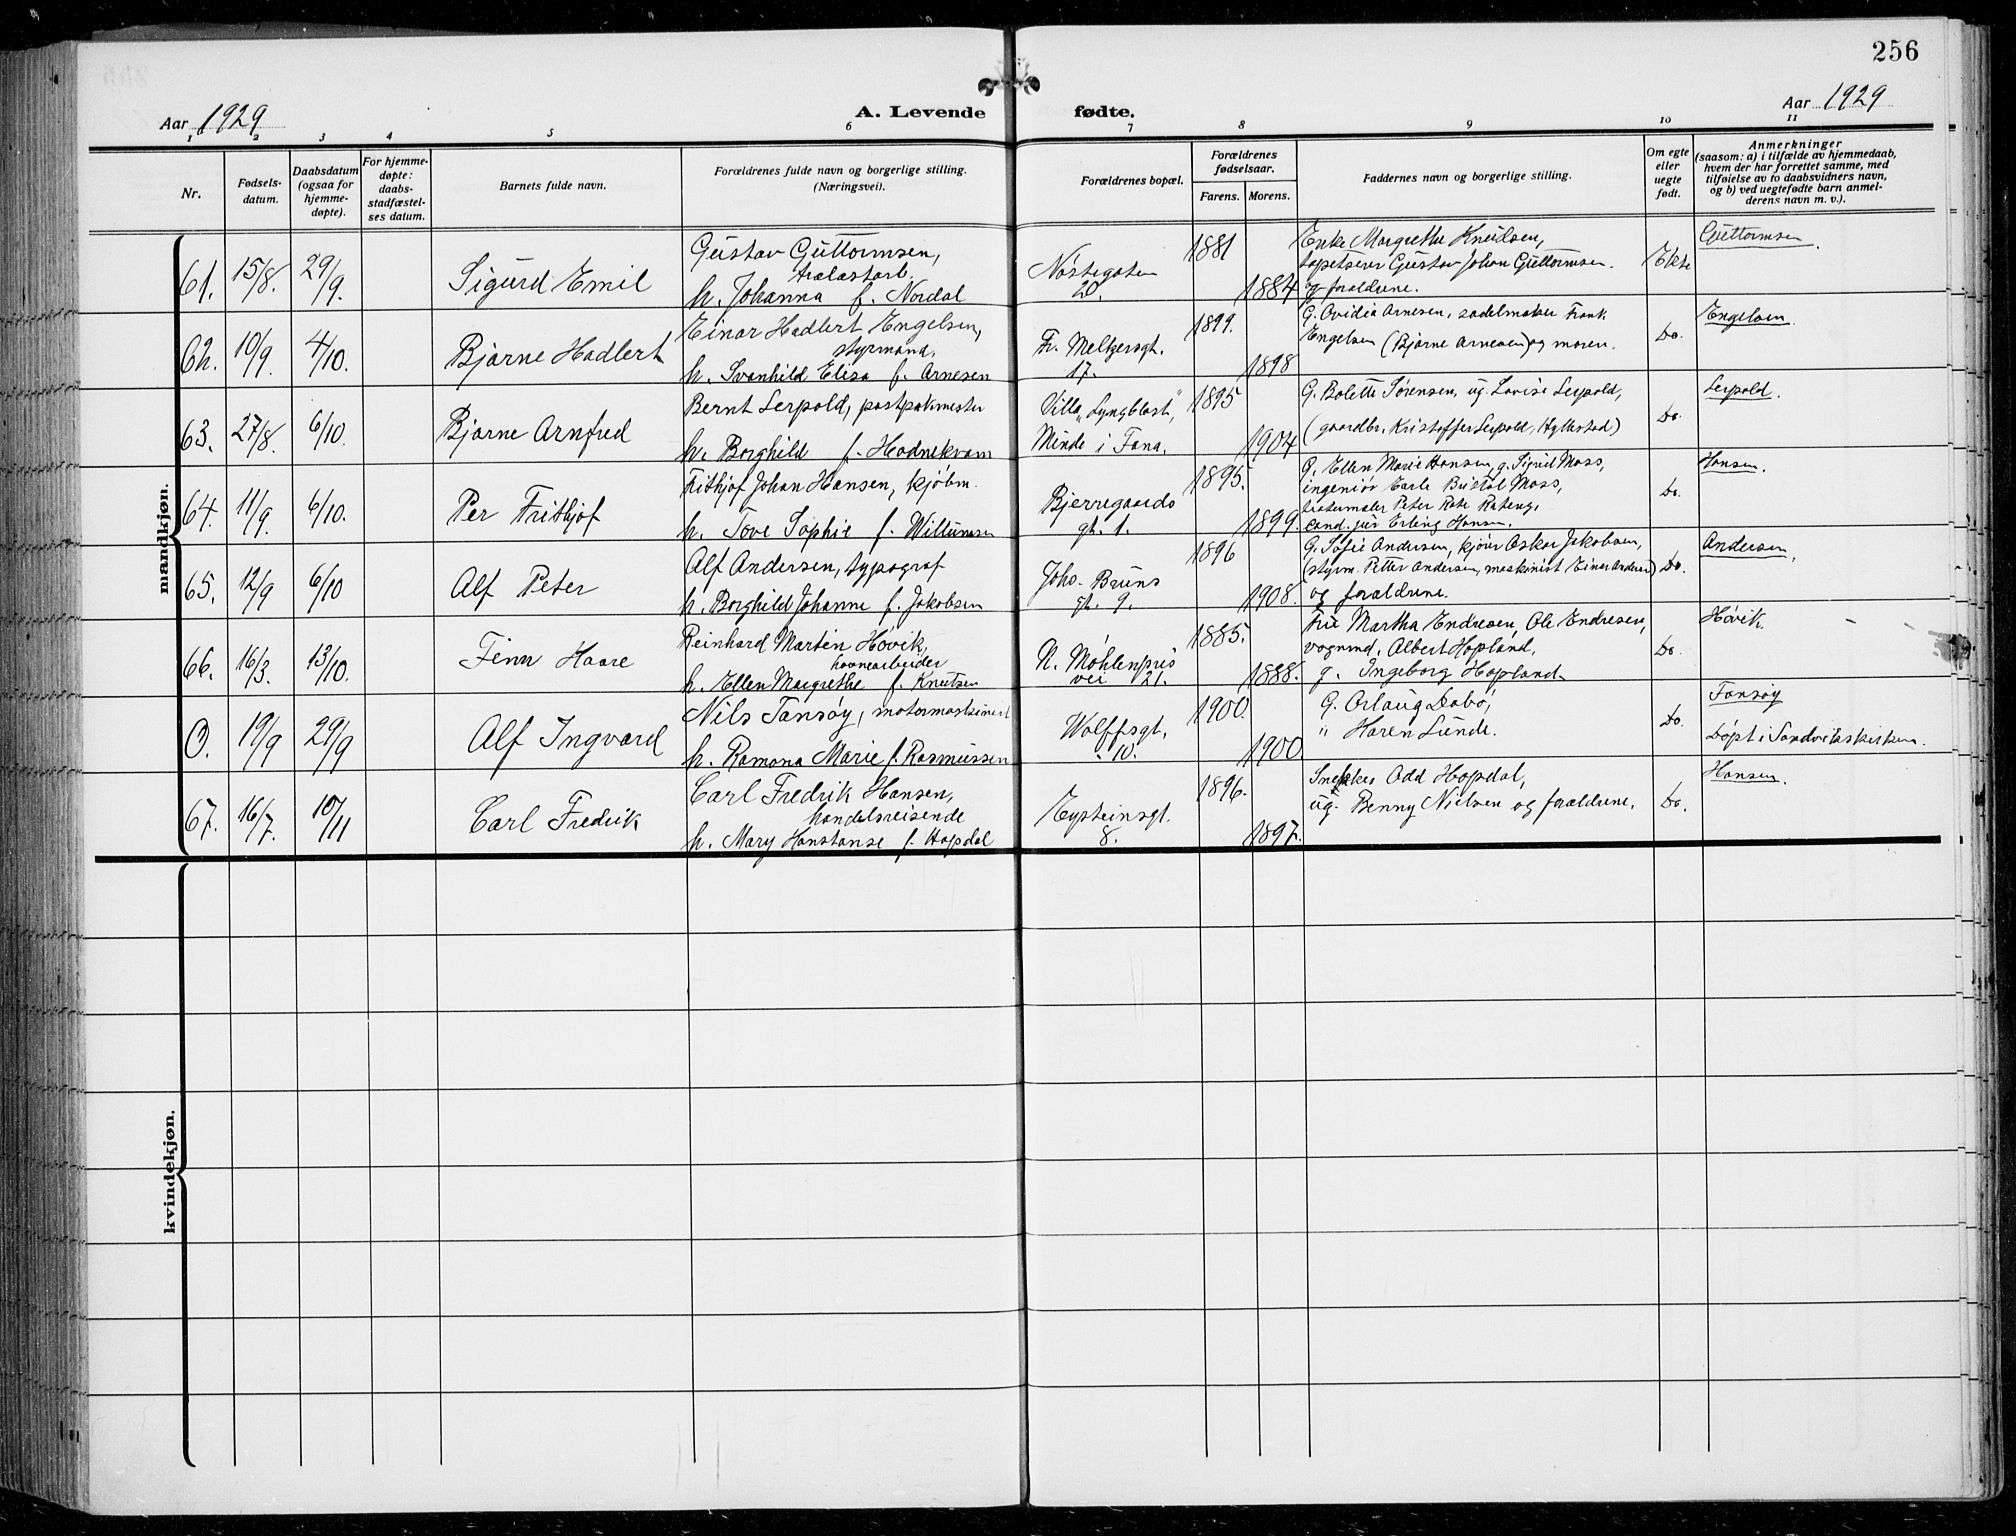 256
Aar 1929
A. Levende fødte.
Aar 1929
1 2 3 4 5 6 7 8 9 10 11
Nr.
Fødsels-
datum.
Daabsdatum
(ogsaa for
hjemme-
døpte).
For hjemme-
døpte:
daabs-
stadfæstel-
ses datum.
Barnets fulde navn.
Forældrenes fulde navn og borgerlige stilling.
(Næringsvei).
Forældrenes bopæl.
Forældrenes
fødselsaar.
Farens. Morens.
Faddernes navn og borgerlige stilling.
Om egte
eller
uegte
født.
Anmerkninger
(saasom: a) i tilfælde av hjemmedaab,
hvem der har forrettet samme, med
tilføielse av to daabsvidners navn,
og b) ved uegtefødte barn anmel-
derens navn m. v.).
mandkjøn.
61. 15/8. 29/9. Sigurd Emil
Gustav Guttormsen,
trælastarb.
h. Johanna f. Nordal
Nøstegaten
20.
1881
1884
Enke Margrethe Knudsen,
tapetserer Gustav Johan Guttormsen.
og forældrene.
Ekte
Guttormsen.
62. 10/9. 4/10. Bjarne Hadlert
Einar Hadlert Engelsen,
styrmand.
h. Svanhild Elisa f. Arnesen
Fr. Meltzersgt.
17.
1899.
1898
G. Ovidia Arnesen, sadelmaker Frank
Engelsen (Bjarne Arnesen) og moren.
Do.
Engelsen
63. 27/8. 6/10. Bjarne Arnfred
Bernt Leipold, postpakmester
h. Borghild f. Hodnekvam
Villa "Lyngblost",
Minde i Fana.
1895
1904
G. Bolette Sørensen, ug. Lovise Leipold,
(gaardbr. Kristoffer Leipold, Hyllestad)
Do.
Leipold.
64. 11/9. 6/10. Per Frithjof
Frithjof Johan Hansen, kjøbm.
h. Tove Sophie f. Willumsen
Bjerregaards
gt. 1.
1895.
1899.
G. Ellen Marie Hansen, g. Sigrid Moss,
ingeniør Earle Bristol Moss,
cand. jur Erling Hansen.
Do.
Hansen.
65. 12/9 6/10 Alf Peter
Alf Andersen, typograf
h. Borghild Johanne f. Jakobsen
Johs. Bruns
gt. 9.
1896
1908.
G. Sofie Andersen, kjører Oskar Jakobsen,
(styrm. Petter Andersen, maskinist Einar Andersen)
og forældrene.
Do.
Andersen,
66. 16/3. 13/10. Finn Kaare
Reinhard Martin Høvik,
havnearbeider
h. Ellen Margrethe f. Knutsen
N. Møhlenpris
vei 21.
1885.
1888.
Fru Martha Endresen, Ole Endresen,
vognmd. Albert Hopland,
g. Ingeborg Hopland.
Do.
Høvik.
0. 19/9 29/9 Alf Ingvard
Nils Fansøy, motormaskinist
h. Ramona Marie f. Rasmussen
Wolffsgt.
10.
1900.
1900
G. Orlaug Dabø,
" Karen Lunde.
Do.
Fansøy
Døpt i Sandvikskirken.
67. 16/7. 10/11 Carl Fredrik
Carl Fredrik Hansen,
handelsreisende
h. Mary Konstanse f. Hopdal
Eysteinsgt.
8.
1896.
1897.
Snekker Odd Hopdal,
ug. Benny Nielsen og forældrene.
Do.
Hansen.
kvindekjøn.